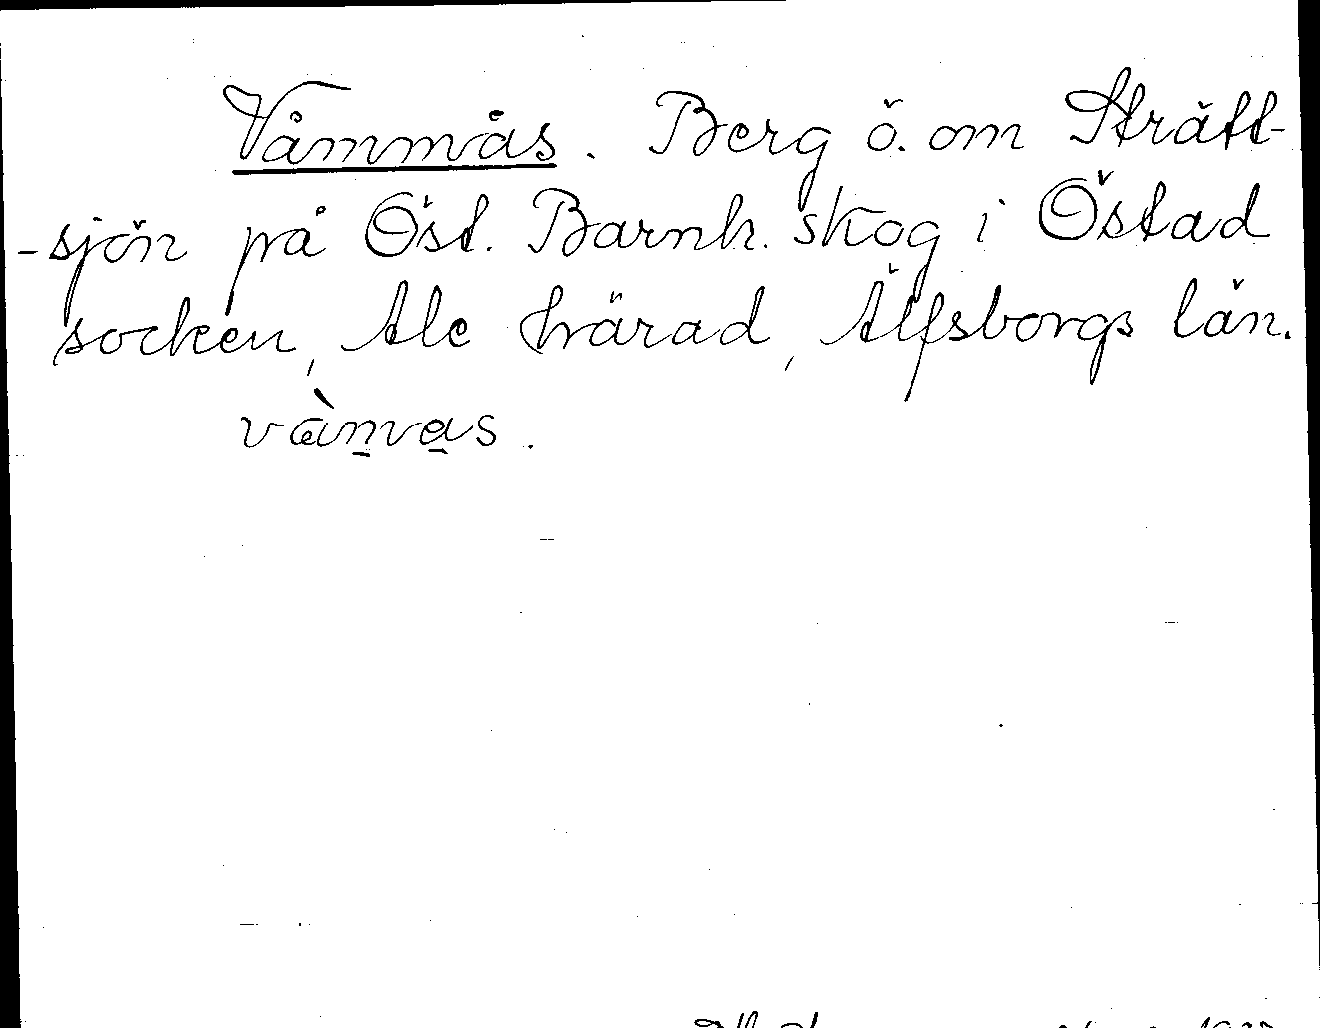 Våmmås. Berg ö. om Strätt-
-sjön på Öst. Barnh. skog i Östad
socken, Ale härad, Älfsborgs län.